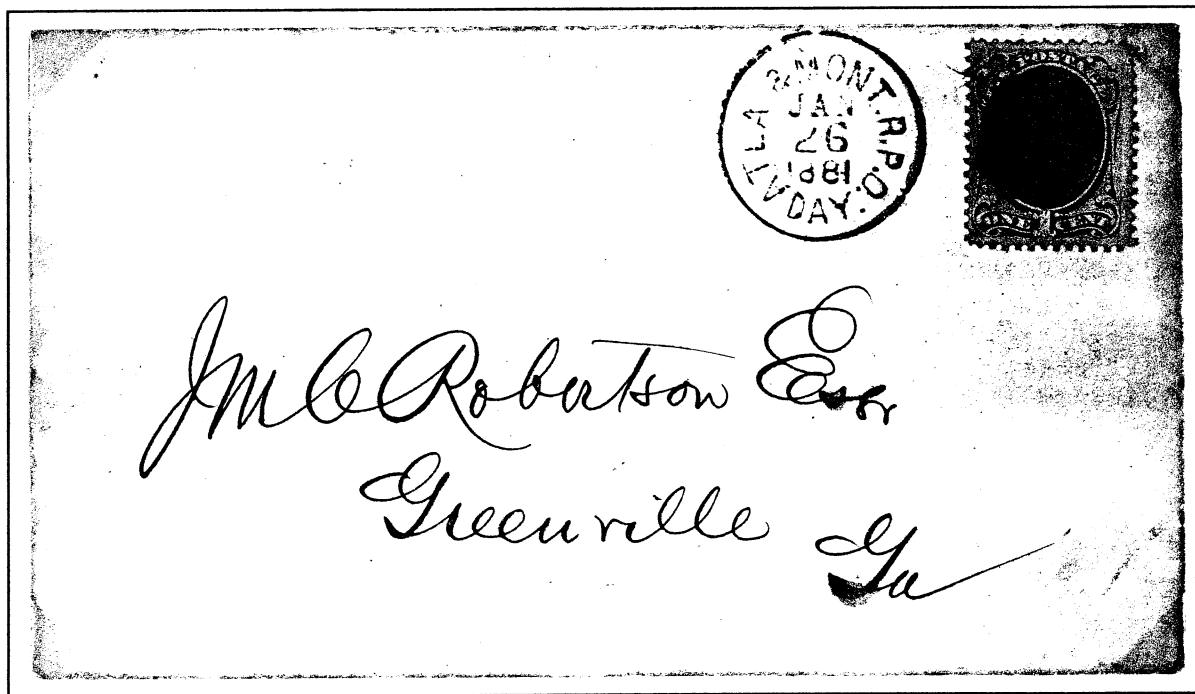 ATLA & MONT. R.P.O.
JAN
26
1881
DAY.
ONE 1 CENT
J M C Robertson Esqr
Greenville Ga